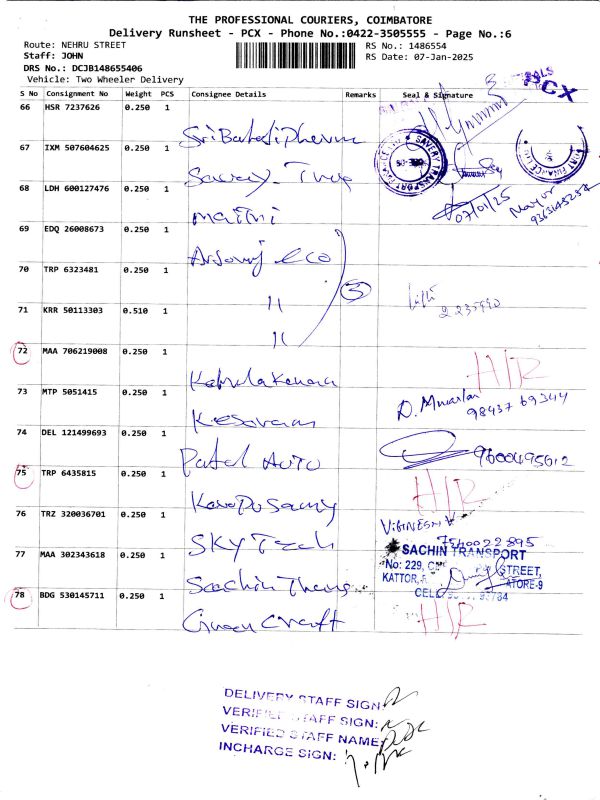 THE PROFESSIONAL COURIERS, COIMBATORE
Delivery Runsheet - PCX - Phone No.:0422-3505555 - Page No.:6
Route: NEHRU STREET
RS No.: 1486554
Staff: JOHN
RS Date: 07-Jan-2025
DRS No.: DCJB148655406
Vehicle: Two Wheeler Delivery
S No Consignment No Weight PCS Consignee Details Remarks Seal & Signature
PCX
66 HSR 7237626 0.250 1 Sri Balaji Pharma
67 IXM 507604625 0.250 1 Savery Trans
SAVERY TRANSPORT
68 LDH 600127476 0.250 1 maitri
07/01/25
69 EDQ 26008673 0.250 1 eco
70 TRP 6323481 0.250 1 11 3
2235990
71 KRR 50113303 0.510 1 11
72 MAA 706219008 0.250 1 H/R
73 MTP 5051415 0.250 1 Kesavan
98437 69344
74 DEL 121499693 0.250 1 Patel Auto 9600495612
75 TRP 6435815 0.250 1 H/R
76 TRZ 320036701 0.250 1 Sky Tech VIGNESH
7540022895
77 MAA 302343618 0.250 1 Sachin Trans
SACHIN TRANSPORT
No: 229, STREET,
KATTOR, ATORE-9
CELL
78 BDG 530145711 0.250 1 Green Craft H/R
DELIVERY STAFF SIGN:
VERIFIED STAFF SIGN:
VERIFIED STAFF NAME:
INCHARGE SIGN: